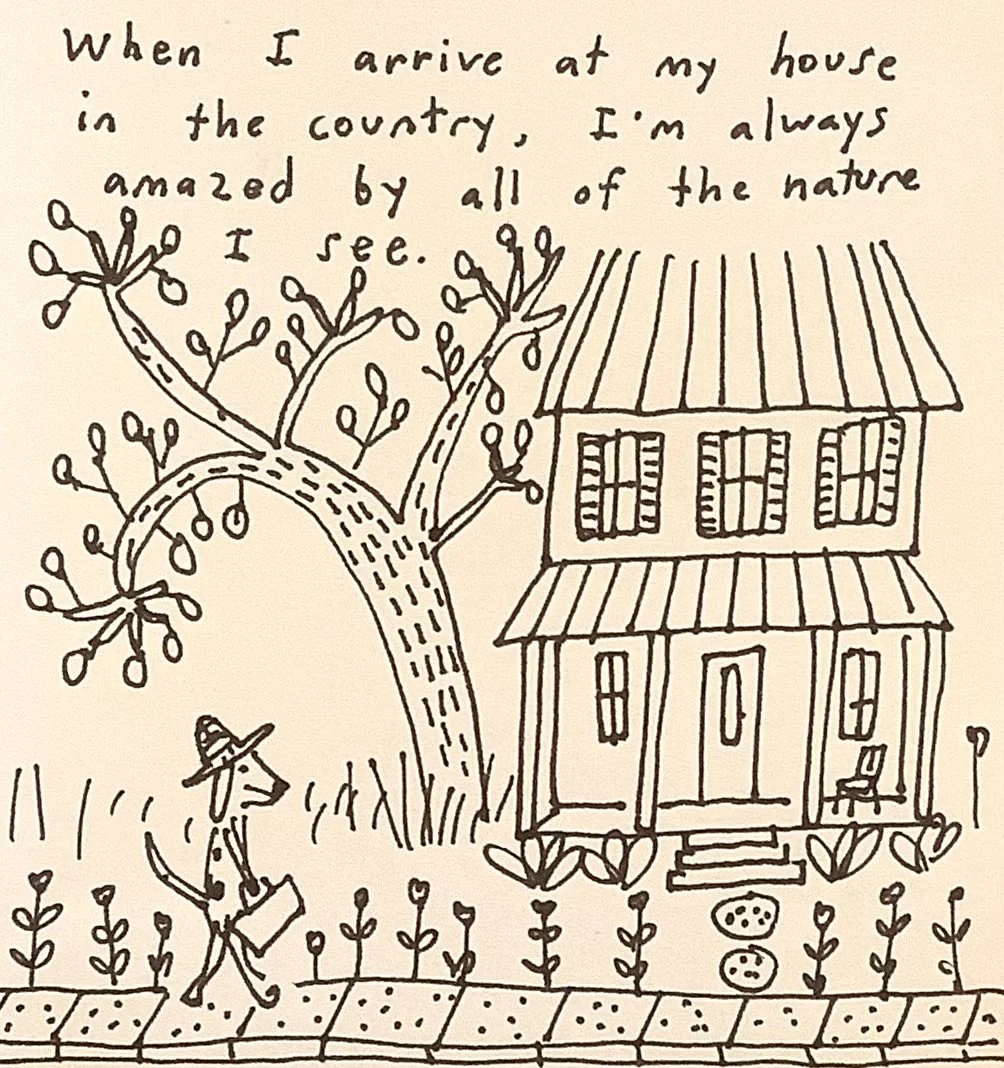 When I arrive at my house
in the country, I'm always
amazed by all of the nature
I see.